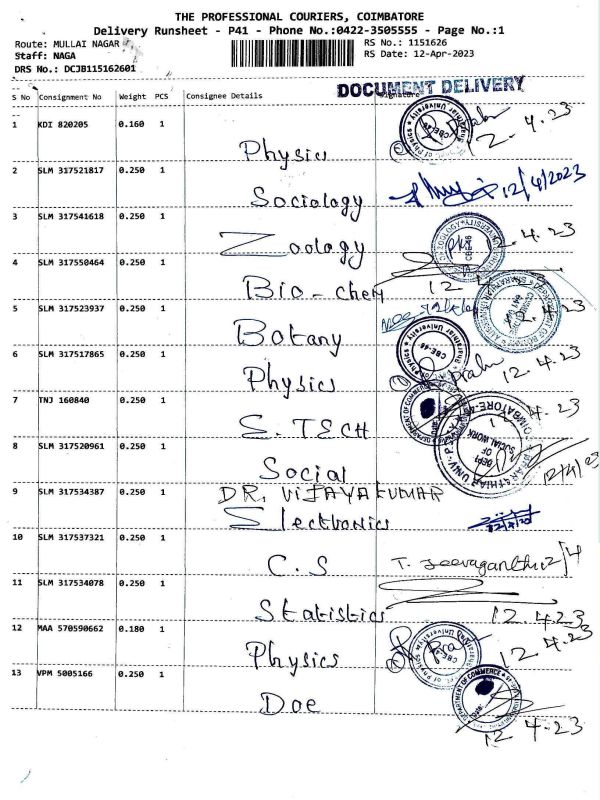 THE PROFESSIONAL COURIERS, COIMBATORE
Delivery Runsheet - P41 - Phone No.:0422-3505555 - Page No.:1
Route: MULLAI NAGAR
RS No.: 1151626
Staff: NAGA
RS Date: 12-Apr-2023
DRS No.: DCJB115162601
DOCUMENT DELIVERY
S No Consignment No Weight PCS Consignee Details Signature
1 KDI 820205 0.160 1 Physics 12.4.23
2 SLM 317521817 0.250 1 Sociology 12/4/2023
3 SLM 317541618 0.250 1 Zoology 12.4.23
4 SLM 317550464 0.250 1 Bio-chem 12.4.23
5 SLM 317523937 0.250 1 Botany
6 SLM 317517865 0.250 1 Physics 12.4.23
7 TNJ 160840 0.250 1 S.TECH 12.4.23
8 SLM 317520961 0.250 1 Social 12/4/23
9 SLM 317534387 0.250 1 DR. VIJAYAKUMAR
Electronics
10 SLM 317537321 0.250 1 C.S T. Jeevaganthi 12/4
11 SLM 317534078 0.250 1 Statistics 12.4.23
12 MAA 570590662 0.180 1 Physics 12.4.23
13 VPM 5005166 0.250 1 Doe 12.4.23